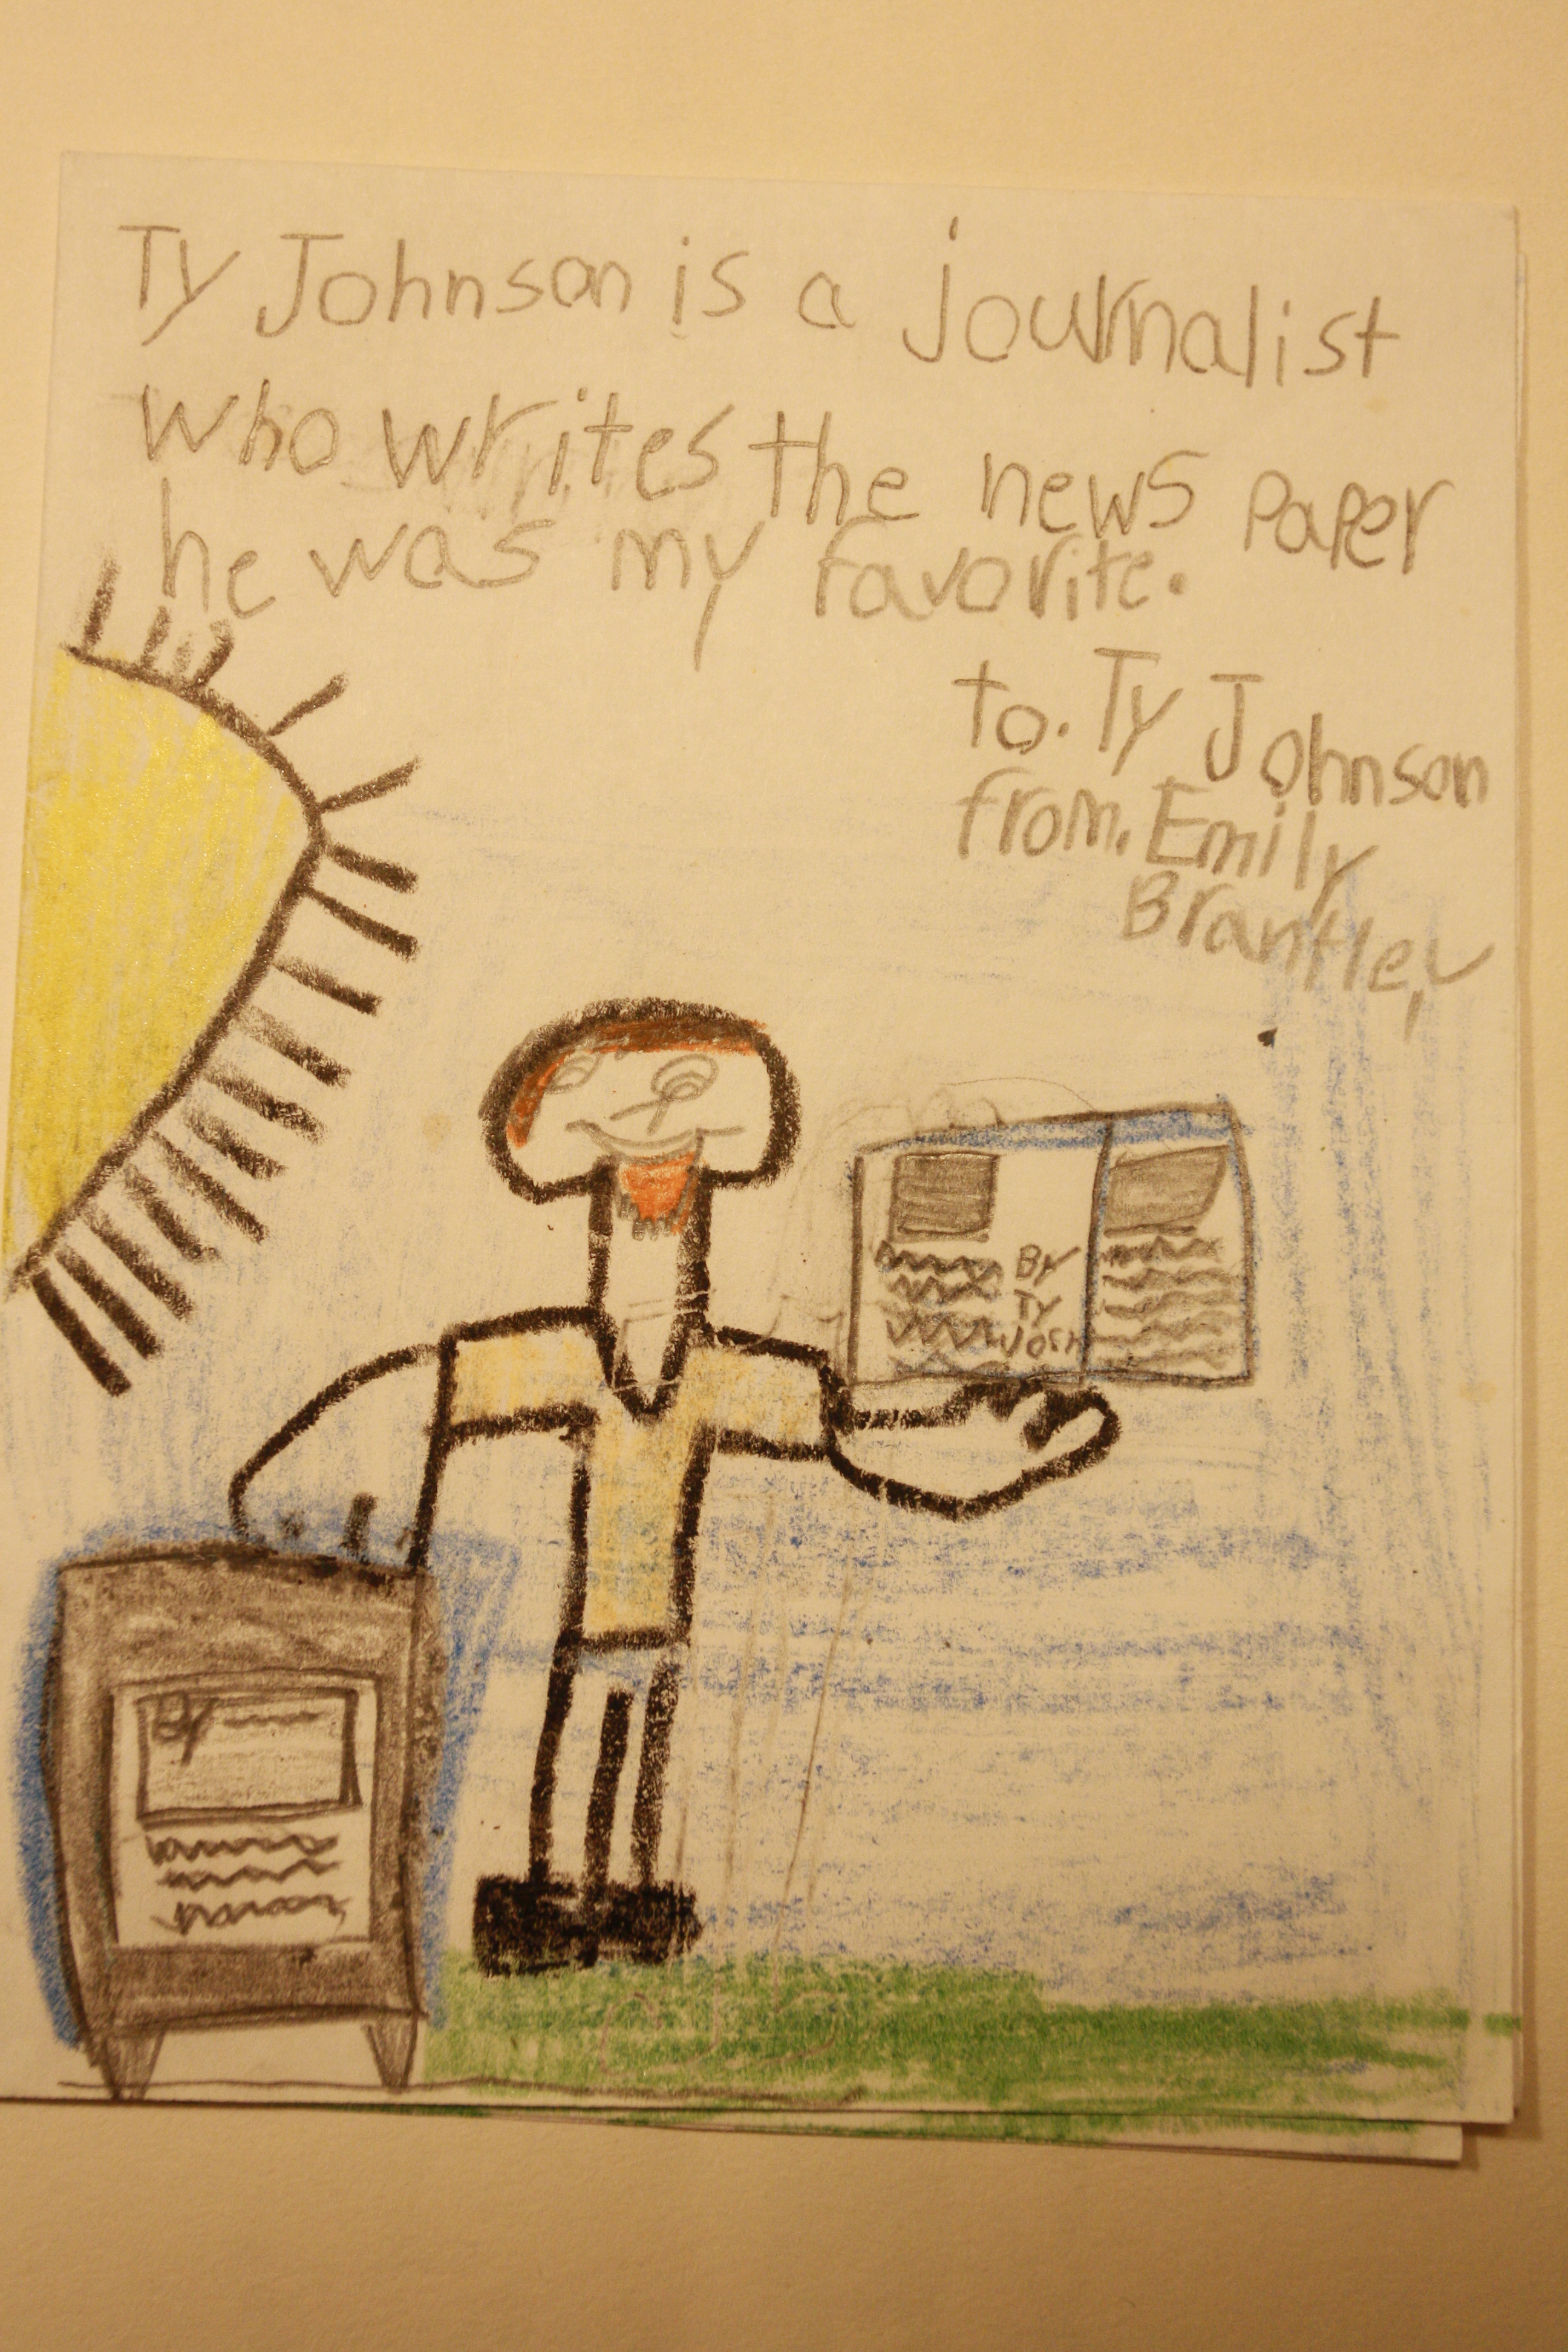 Ty Johnson is a journalist
who writes the news paper
he was my favorite.
to. Ty Johnson
from. Emily
Brantley
By
Ty
By